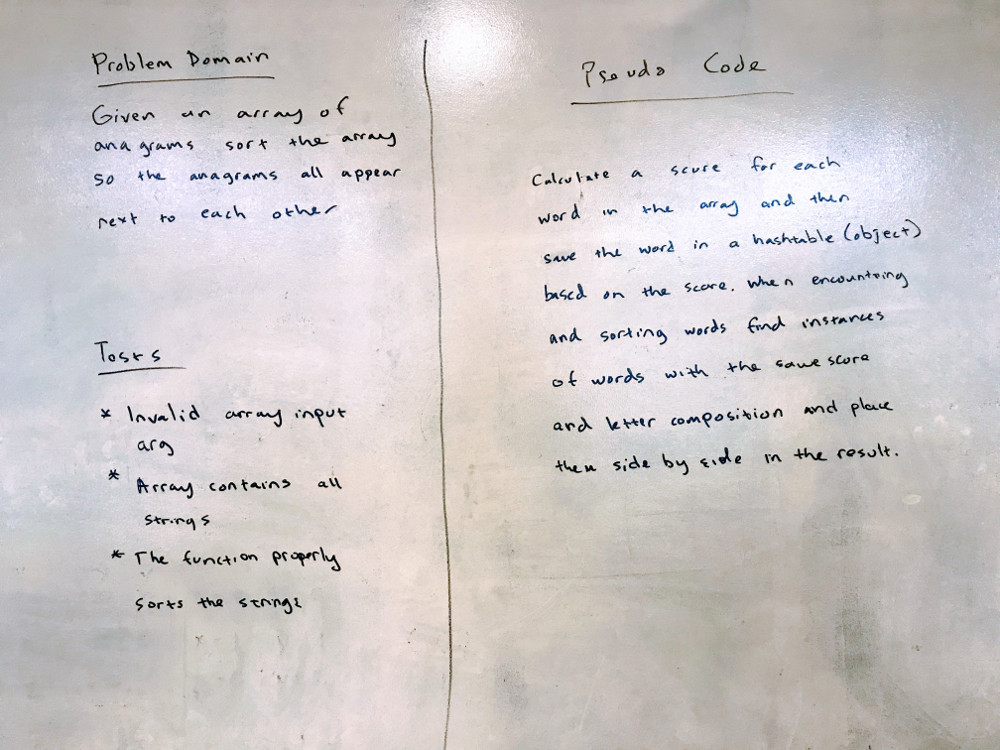 Problem Domain
Given an array of
anagrams sort the array
so the anagrams all appear
next to each other
Tests
* Invalid array input
arg
* Array contains all
strings
* The function properly
sorts the strings
Pseudo Code
Calculate a score for each
word in the array and then
save the word in a hashtable (object)
based on the score. When encountring
and sorting words find instances
of words with the same score
and letter composition and place
then side by side in the result.